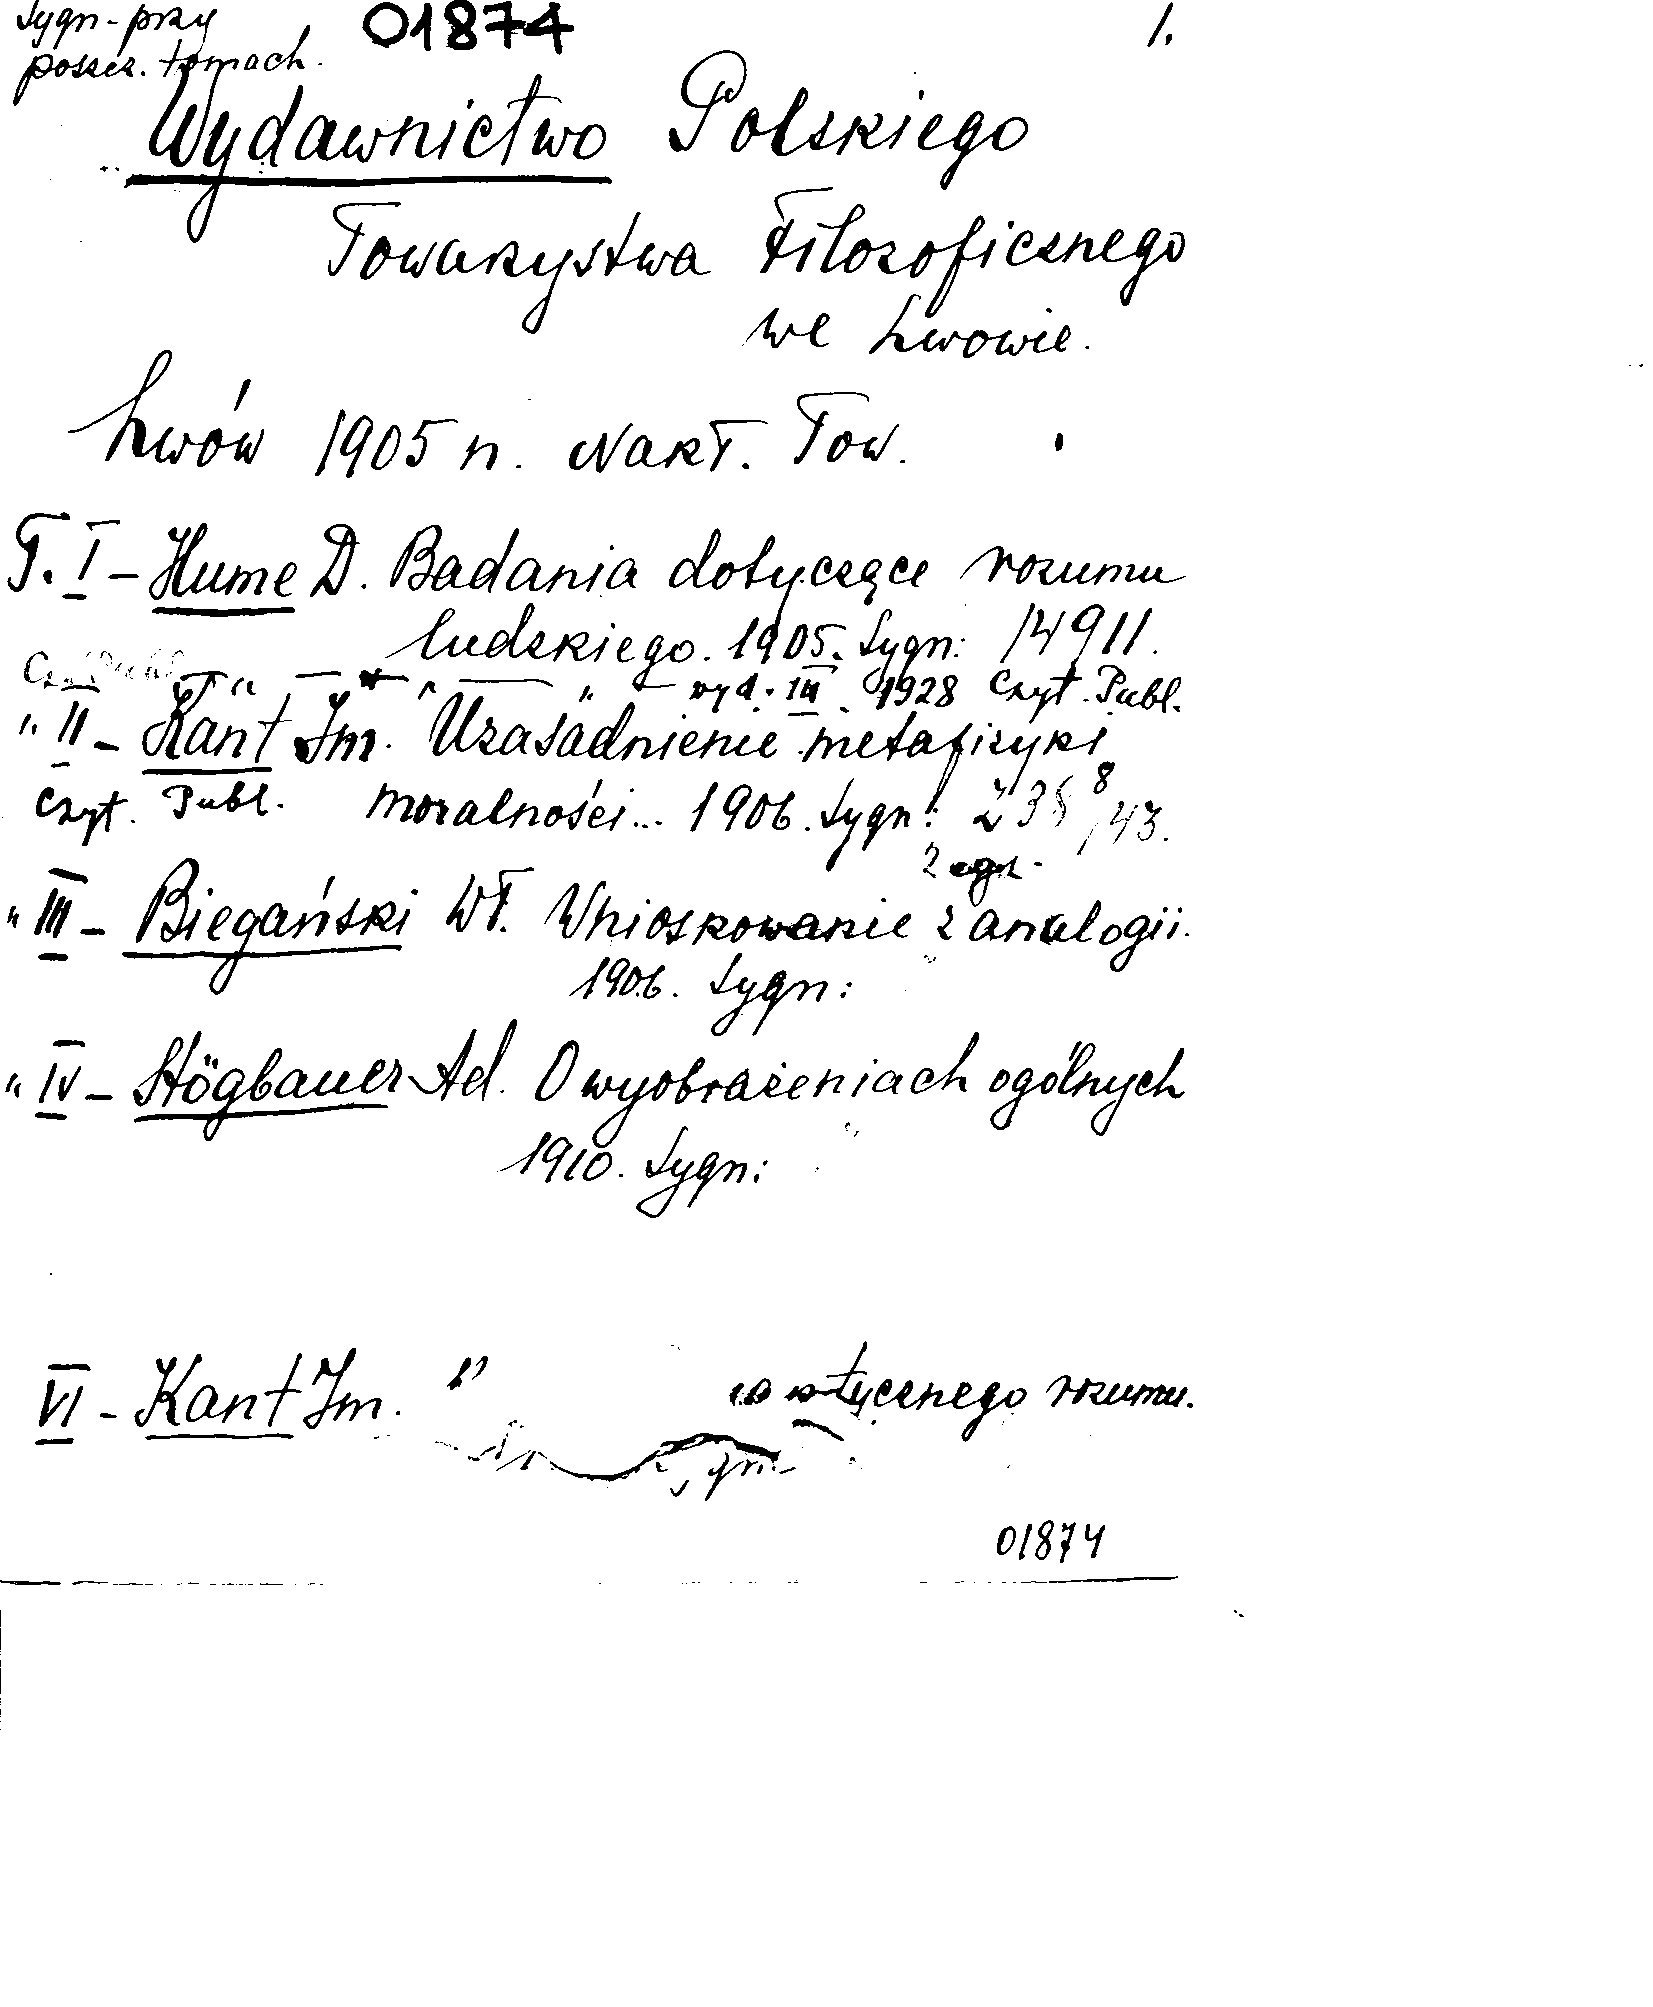 Sygn. przy 01874 1.
poszcz. tomach.
Wydawnictwo Polskiego
Towarzystwa Filozoficznego
we Lwowie.
Lwów 1905 n. Nakł. Tow.
T. I - Hume D. Badania dotyczące rozumu
ludzkiego. 1905. Sygn: 14911.
" wyd. III. 1928 Czyt. Publ.
" II - Kant Im. Uzasadnienie metafizyki
Czyt. Publ. moralności... 1906. Sygn:
2 egz.
" III - Biegański Wł. Wnioskowanie z analogii.
1906. Sygn:
" IV - Stögbauer Ad. O wyobrażeniach ogólnych
1910. Sygn:
VI - Kant Im. rozumu.
01874